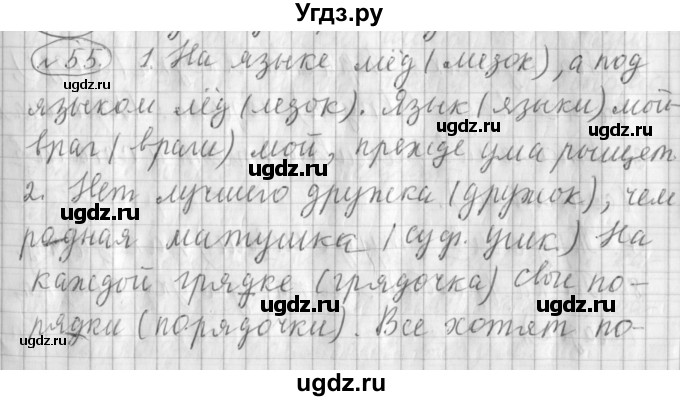 Угдз.ру
№ 55. 1. На языке мёд (мезок), а под
языком лёд (лезок). Язык (языки) мой
враг (враги) мой, прежде ума рыщет
2. Нет лучшего дружка (дружок), чем
родная матушка (суф. ушк.) На
каждой грядке (грядочка) свои по-
рядки (порядочки). Все хотят по-
ugdz.ru
ugdz.ru
ugdz.ru
ugdz.ru
ugdz.ru
ugdz.ru
ugdz.ru
ugdz.ru
ugdz.ru
ugdz.ru